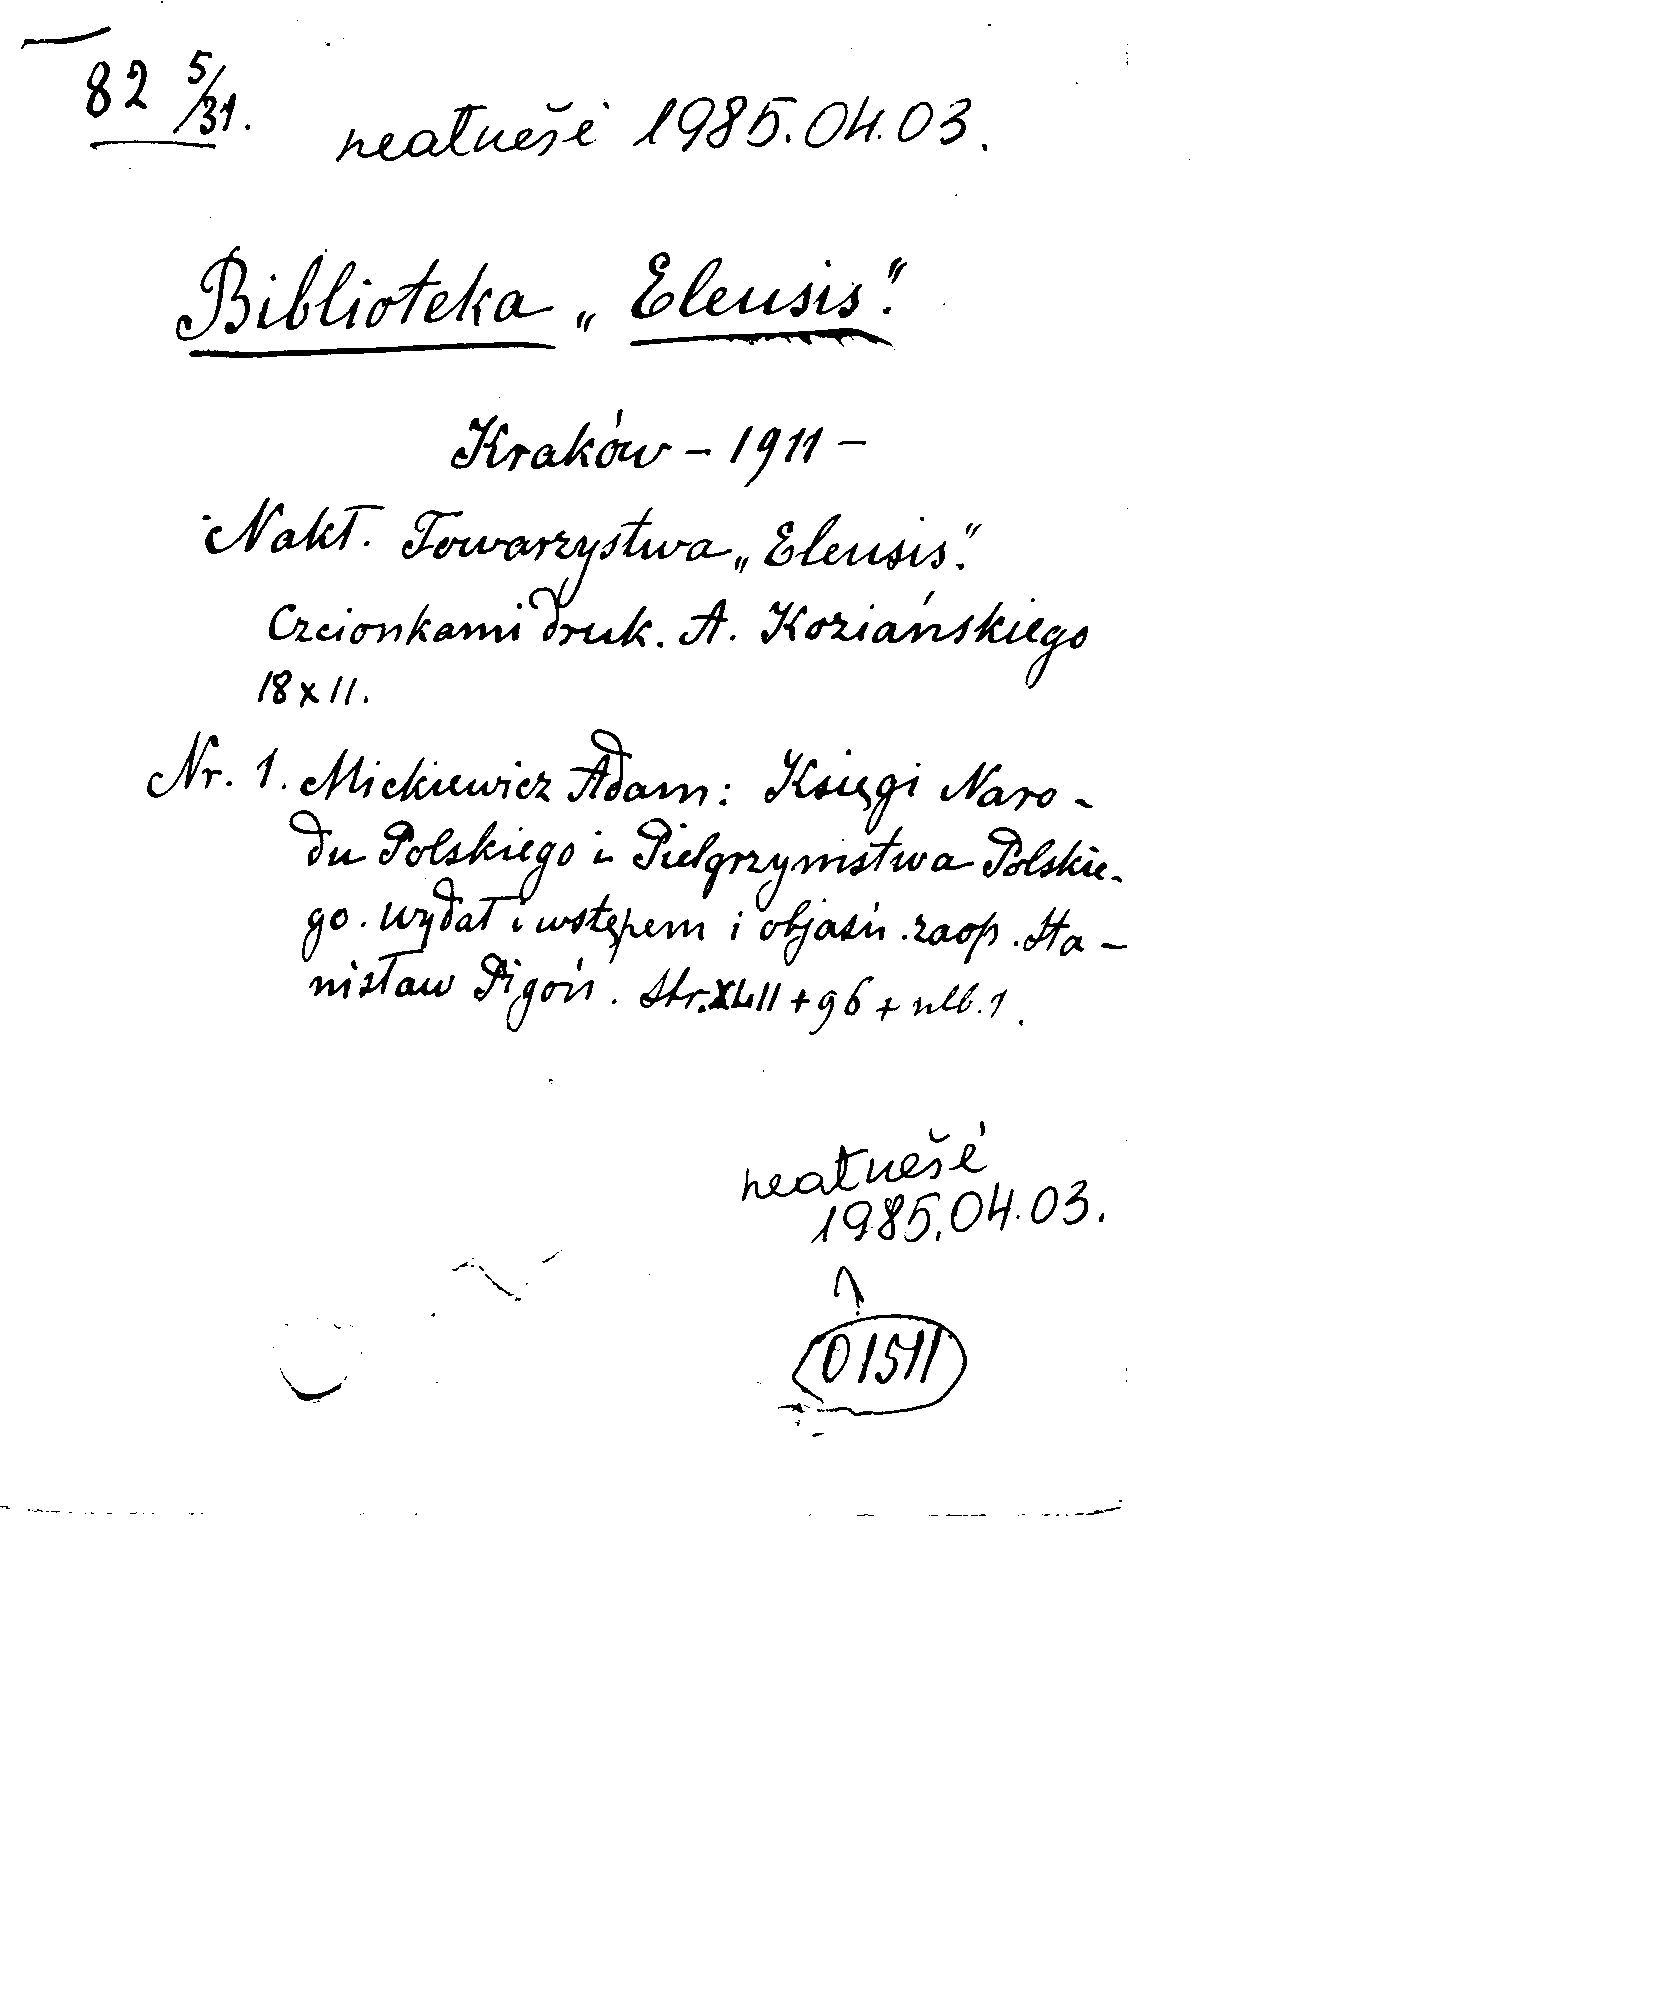 82 5/31.
neatnešė 1985.04.03.
Biblioteka „Eleusis".
Kraków – 1911 –
Nakł. Towarzystwa „Eleusis".
Czcionkami druk. A. Koziańskiego
18 x 11.
Nr. 1. Mickiewicz Adam: Księgi Naro-
du Polskiego i Pielgrzymstwa Polskie-
go. Wydał i wstępem i objaśń. zaop. Sta-
nisław Pigoń. Str. XLII + 96 + nlb. 1.
neatnešė
1985.04.03.
01511